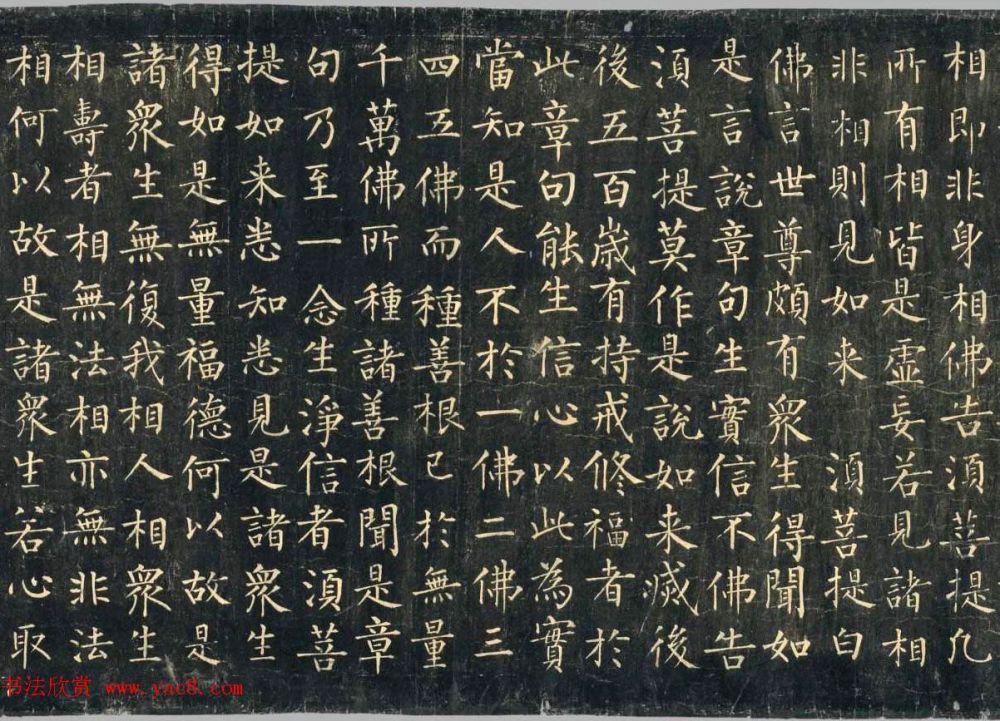 相即非身相佛告須菩提凡
所有相皆是虛妄若見諸相
非相則見如来 須菩提白
佛言世尊頗有衆生得聞如
是言說章句生實信不佛告
須菩提莫作是說如来滅後
後五百歲有持戒修福者於
此章句能生信心以此為實
當知是人不於一佛二佛三
四五佛而種善根已於無量
千萬佛所種諸善根聞是章
句乃至一念生淨信者須菩
提如来悉知悉見是諸衆生
得如是無量福德何以故是
諸衆生無復我相人相衆生
相壽者相無法相亦無非法
相何以故是諸衆生若心取
书法欣赏 www.yac8.com